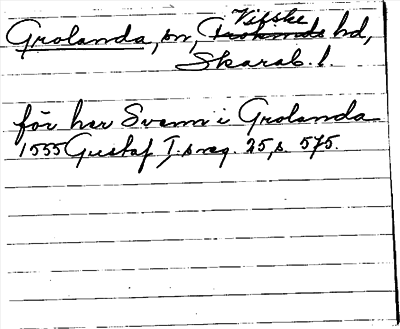 Grolanda, sn, Vifske hd,
Skarab. l.
för her Svenn i Grolanda
1555 Gustaf I:s reg 25, s. 575.